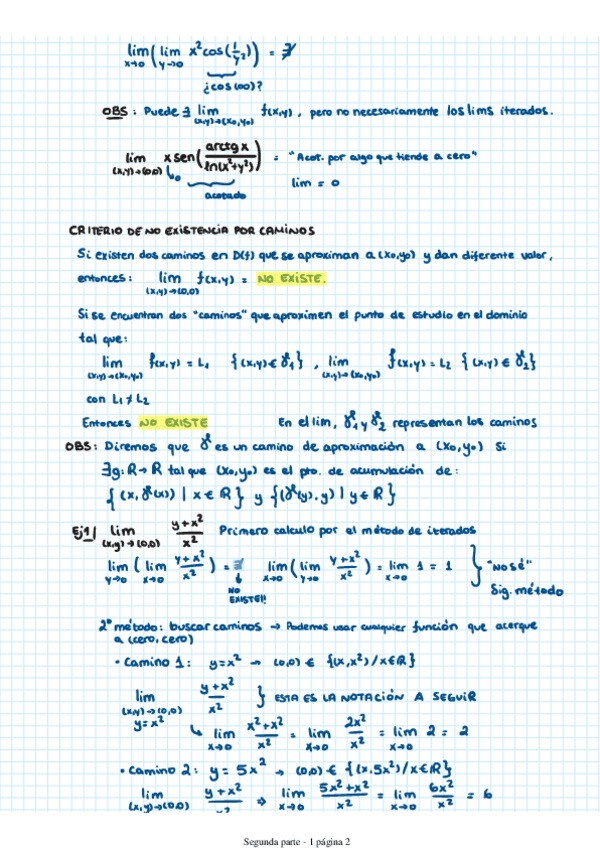 lim (lim x² cos(1/y²)) = ∄
x→0 y→0
¿cos(∞)?
OBS: Puede ∃ lim f(x,y), pero no necesariamente los lims iterados.
(x,y)→(x₀,y₀)
lim x sen(arctg x / ln(x²+y²)) = "Acot. por algo que tiende a cero"
(x,y)→(0,0) ↘0
acotado lim = 0
CRITERIO DE NO EXISTENCIA POR CAMINOS
Si existen dos caminos en D(f) que se aproximan a (x₀,y₀) y dan diferente valor,
entonces: lim f(x,y) = NO EXISTE.
(x,y)→(0,0)
Si se encuentran dos "caminos" que aproximen el punto de estudio en el dominio
tal que:
lim f(x,y) = L₁ {(x,y) ∈ γ₁}, lim f(x,y) = L₂ {(x,y) ∈ γ₂}
(x,y)→(x₀,y₀) (x,y)→(x₀,y₀)
con L₁ ≠ L₂
Entonces NO EXISTE En el lim, γ₁ y γ₂ representan los caminos
OBS: Diremos que γ es un camino de aproximación a (x₀,y₀) si
∃g: R→R tal que (x₀,y₀) es el pto. de acumulación de:
{(x, γ(x)) | x ∈ R} y {(γ(y), y) | y ∈ R}
Ej1/ lim (y+x²)/x² Primero calculo por el método de iterados
(x,y)→(0,0)
lim (lim (y+x²)/x²) = ∄ lim (lim (y+x²)/x²) = lim 1 = 1 } "No sé"
y→0 x→0 x→0 y→0 x→0
NO EXISTE!! Sig. método
2º método: buscar caminos → Podemos usar cualquier función que acerque
a (cero, cero)
• Camino 1: y=x² → (0,0) ∈ {(x,x²)/x∈R}
lim (y+x²)/x² } ESTA ES LA NOTACIÓN A SEGUIR
(x,y)→(0,0)
y=x² ↳ lim (x²+x²)/x² = lim 2x²/x² = lim 2 = 2
x→0 x→0 x→0
• Camino 2: y = 5x² → (0,0) ∈ {(x,5x²)/x∈R}
lim (y+x²)/x² ⇒ lim (5x²+x²)/x² = lim 6x²/x² = 6
(x,y)→(0,0) x→0 x→0
Segunda parte - 1 página 2